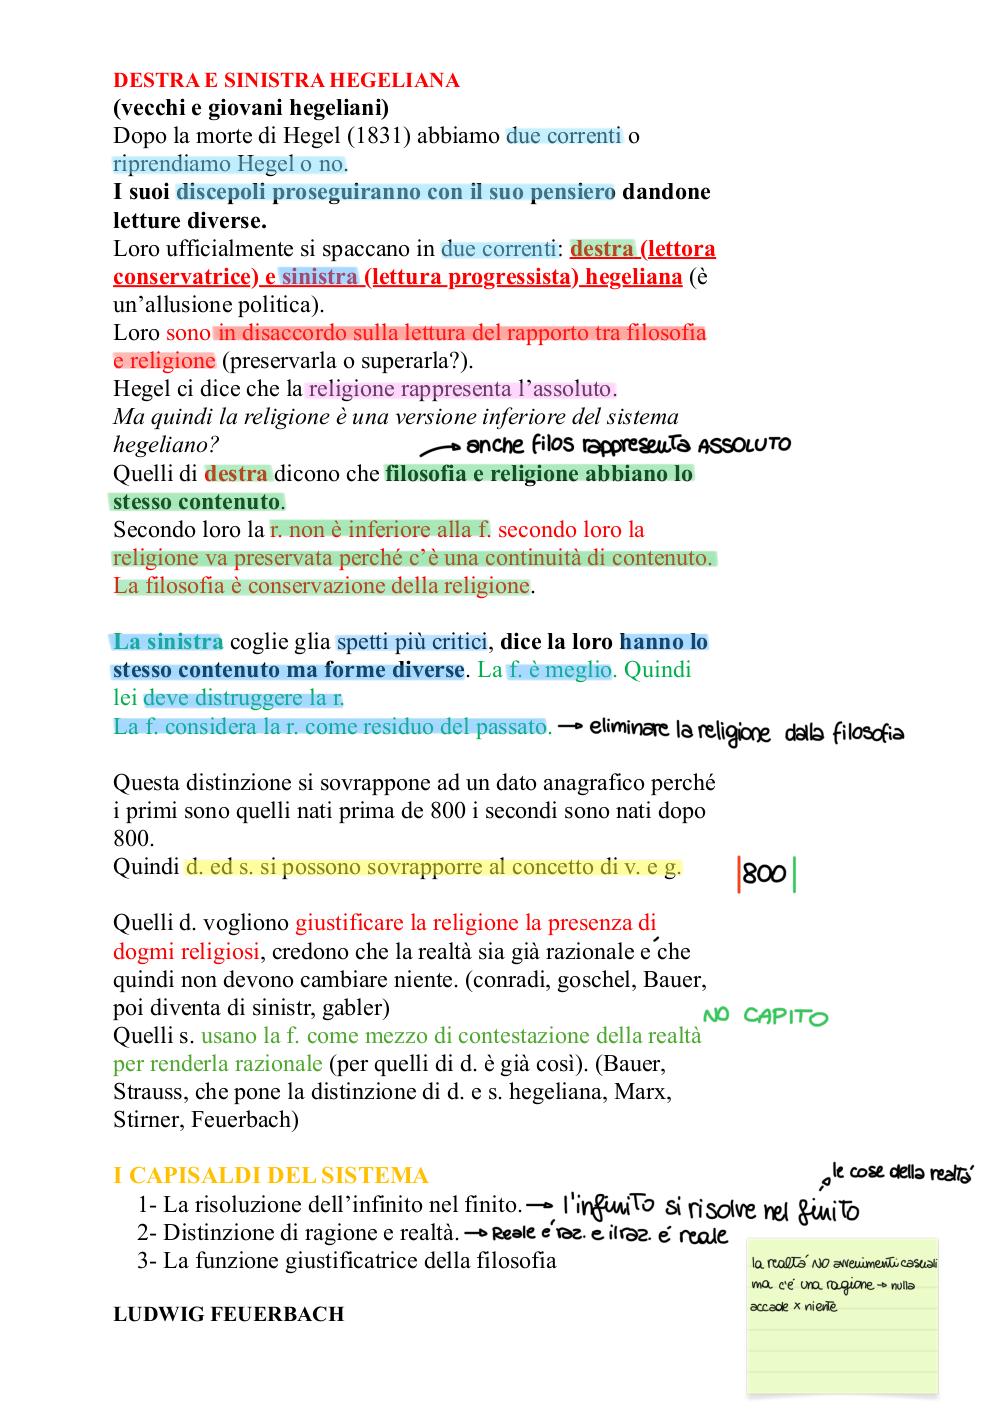 DESTRA E SINISTRA HEGELIANA
(vecchi e giovani hegeliani)
Dopo la morte di Hegel (1831) abbiamo due correnti o
riprendiamo Hegel o no.
I suoi discepoli proseguiranno con il suo pensiero dandone
letture diverse.
Loro ufficialmente si spaccano in due correnti: destra (lettora
conservatrice) e sinistra (lettura progressista) hegeliana (è
un’allusione politica).
Loro sono in disaccordo sulla lettura del rapporto tra filosofia
e religione (preservarla o superarla?).
Hegel ci dice che la religione rappresenta l’assoluto.
Ma quindi la religione è una versione inferiore del sistema
hegeliano?
→ anche filos rappresenta ASSOLUTO
Quelli di destra dicono che filosofia e religione abbiano lo
stesso contenuto.
Secondo loro la r. non è inferiore alla f. secondo loro la
religione va preservata perché c’è una continuità di contenuto.
La filosofia è conservazione della religione.
La sinistra coglie glia spetti più critici, dice la loro hanno lo
stesso contenuto ma forme diverse. La f. è meglio. Quindi
lei deve distruggere la r.
La f. considera la r. come residuo del passato. → eliminare la religione dalla filosofia
Questa distinzione si sovrappone ad un dato anagrafico perché
i primi sono quelli nati prima de 800 i secondi sono nati dopo
800.
Quindi d. ed s. si possono sovrapporre al concetto di v. e g.
|800|
Quelli d. vogliono giustificare la religione la presenza di
dogmi religiosi, credono che la realtà sia già razionale e che
quindi non devono cambiare niente. (conradi, goschel, Bauer,
poi diventa di sinistr, gabler)
NO CAPITO
Quelli s. usano la f. come mezzo di contestazione della realtà
per renderla razionale (per quelli di d. è già così). (Bauer,
Strauss, che pone la distinzione di d. e s. hegeliana, Marx,
Stirner, Feuerbach)
I CAPISALDI DEL SISTEMA
le cose della realtá
1- La risoluzione dell’infinito nel finito. → l'infinito si risolve nel finito
2- Distinzione di ragione e realtà. → Reale é raz. e il raz. é reale
3- La funzione giustificatrice della filosofia
la realtá NO avvenimenti casuali
ma c'é una ragione → nulla
accade x niente
LUDWIG FEUERBACH